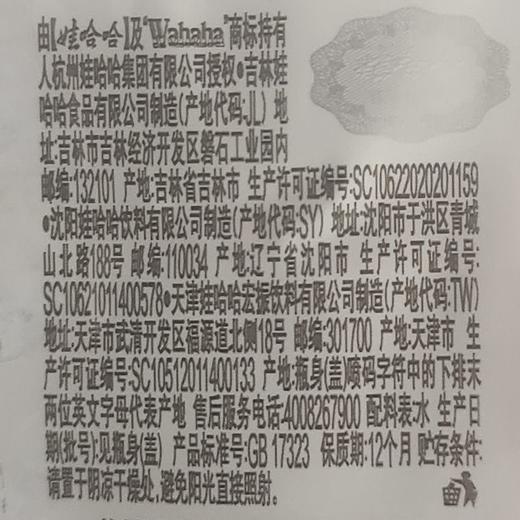 由【娃哈哈】及“Wahaha”商标持有
人杭州娃哈哈集团有限公司授权●吉林娃
哈哈食品有限公司制造(产地代码:JL) 地
址:吉林市吉林经济开发区磐石工业园内
邮编:132101 产地:吉林省吉林市 生产许可证编号:SC10622020201159
●沈阳娃哈哈饮料有限公司制造(产地代码:SY) 地址:沈阳市于洪区青城
山北路188号 邮编:110034 产地:辽宁省沈阳市 生产许可证编号:
SC10621011400578●天津娃哈哈宏振饮料有限公司制造(产地代码:TW)
地址:天津市武清开发区福源道北侧18号 邮编:301700 产地:天津市 生
产许可证编号:SC10512011400133 产地:瓶身(盖)喷码字符中的下排末
两位英文字母代表产地 售后服务电话:4008267900 配料表:水 生产日
期(批号):见瓶身(盖) 产品标准号:GB 17323 保质期:12个月 贮存条件:
请置于阴凉干燥处,避免阳光直接照射。